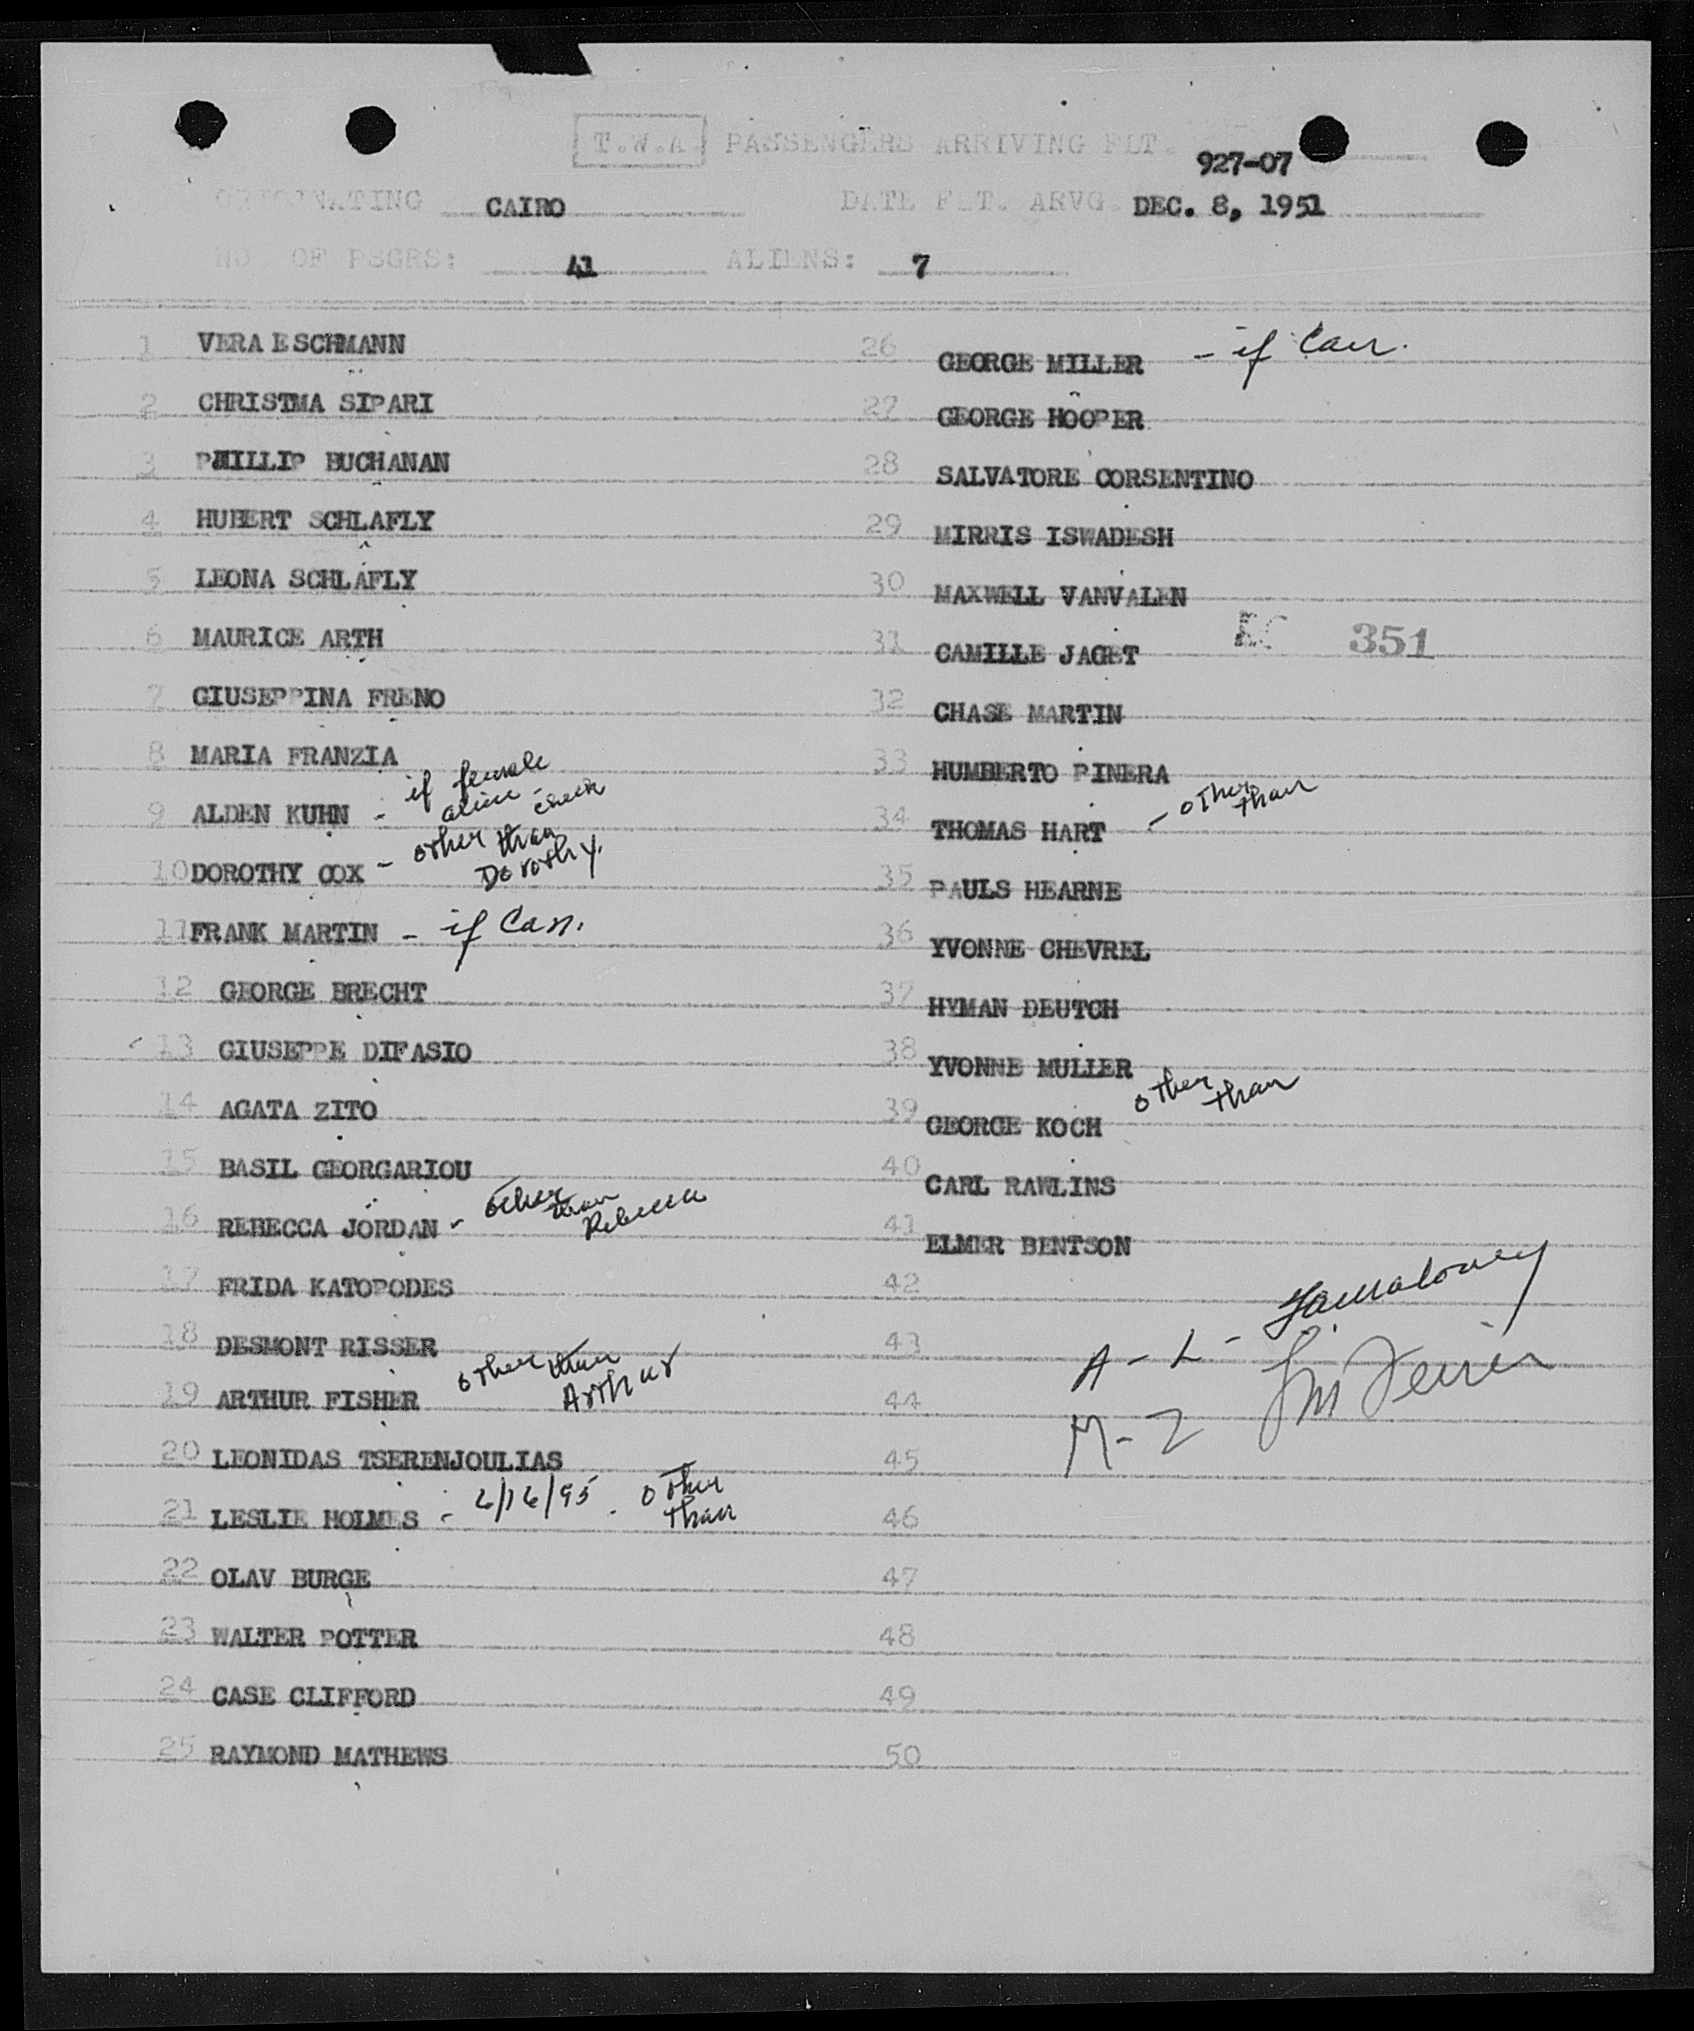 T.W.A. PASSENGERS ARRIVING FLT. 927-07
ORIGINATING CAIRO DATE FLT. ARVG. DEC. 8, 1951
NO. OF PSGRS: 41 ALIENS: 7
1 VERA ESCHMANN
2 CHRISTMA SIPARI
3 PHILLIP BUCHANAN
4 HUBERT SCHLAFLY
5 LEONA SCHLAFLY
6 MAURICE ARTH
7 GIUSEPPINA FRENO
8 MARIA FRANZIA
9 ALDEN KUHN - if female
check
10 DOROTHY COX - other than
Dorothy.
11 FRANK MARTIN - if Can.
12 GEORGE BRECHT
13 GIUSEPPE DIFASIO
14 AGATA ZITO
15 BASIL GEORGARIOU
16 REBECCA JORDAN - other than
Rebecca
17 FRIDA KATOPODES
18 DESMONT RISSER
19 ARTHUR FISHER other than
Arthur
20 LEONIDAS TSERENJOULIAS
21 LESLIE HOLMES - 6/16/95 - other
than
22 OLAV BURGE
23 WALTER POTTER
24 CASE CLIFFORD
25 RAYMOND MATHEWS
26 GEORGE MILLER - if Can.
27 GEORGE HOOPER
28 SALVATORE CORSENTINO
29 MIRRIS ISWADESH
30 MAXWELL VANVALEN
31 CAMILLE JAGET 351
32 CHASE MARTIN
33 HUMBERTO PINERA
34 THOMAS HART - other
than
35 PAULS HEARNE
36 YVONNE CHEVREL
37 HYMAN DEUTCH
38 YVONNE MULLER
39 GEORGE KOCH other
than
40 CARL RAWLINS
41 ELMER BENTSON
42
43 A - L -
44 M - Z
45
46
47
48
49
50